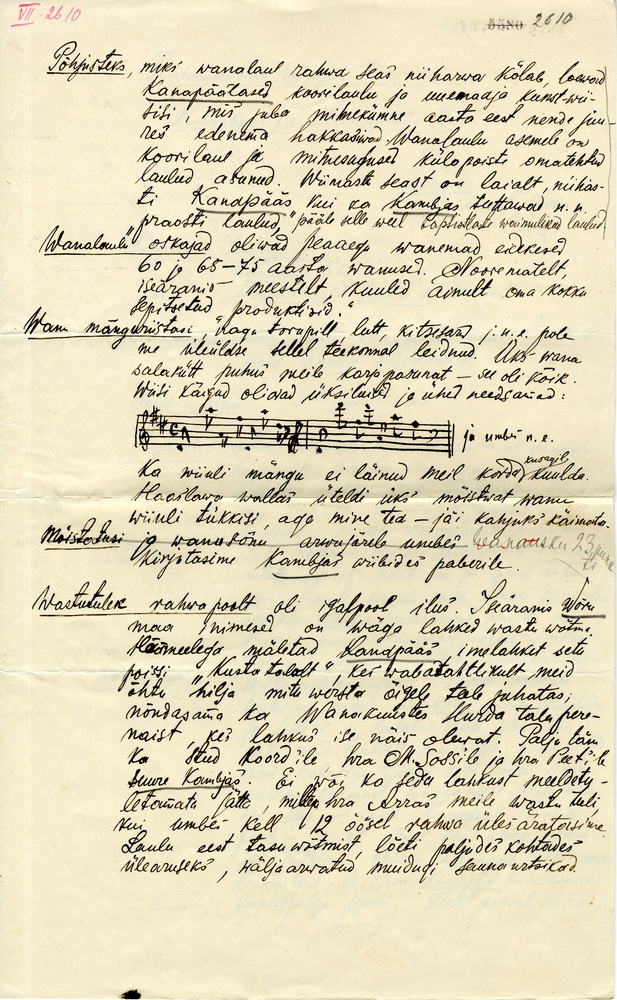 VII 2610
5580 2610
Põhjusteks, miks wanalaul rahwa seas nii harwa kõlab, loewad
Kanapäätased koorilaulu ja uuemaaja kunst-wii-
sisi, mis juba mitmekümne aasta eest nende juu-
res edenema hakkasiwad. Wanalaulu asemele on
koorilaul ja mitmesugused külapoiste omatehtud
laulud asunud. Wiimaste seast on laialt, nii has-
ti Kanapääs kui ka Kambjas tuttawad n. n.
"praosti laulud," pääle selle weel baptistlaste waimulikud laulud.
Wanalaulu oskajad oliwad peaaegu wanemad eidekesed
60 ja 65–75 aasta wanused. Nooremalt,
iseäranis meestelt kuuled ainult oma kokku
sepitsetud "produktisid."
Wanu mänguriistasi, nagu torupill lutt, kitsesarv j. n. e. pole
me üleüldse sellel teekonnal leidnud. Üks wana
salakütt puhus meile karjapasunat – see oli kõik.
Wiisi käigud oliwad üksikuised ja ühed needsamad:
ja umbes n. e.
Ka wiiuli mängu ei läinud meil korda kusagil kuulda.
Haaslawa wallas üteldi üks mõistwat wanu
wiiuli tükkisi, aga mine tea – jäi kahjuks käimata.
Mõistatusi ja wanusõnu arwujärele umbes 23 
Kirjotasime Kambjas wiibides paberile.
Wastutulek rahwa poolt oli igalpool ilus. Iseäranis Wõru
maa inimesed on wäga lahked wastu wõtma.
Häämeelega mäletad Kanapääs, imelahket setu
poissi "Kusta talalt", kes wabatahtlikult meid
õhtu hilja mitu wersta õigele tale juhatas;
nõndasama ka Wanakuustes Hurda talu pere-
naist, kes lahkus ise näis olewat. Palju tänu
ka stud Koord'ile hra M. Sossile ja hra Peet'ile
Suure Kambjas. Ei wõi ka seda lahkust meeldetu-
letamata jätta, millega hra Arras meile wastu tuli
kui umbes kell 12 öösel rahwa üles äratasime.
Laulu eest tasu wõtmist loeti paljudes kohtades
ülearuseks, wälja arwatud muidugi saunaurtsikad.